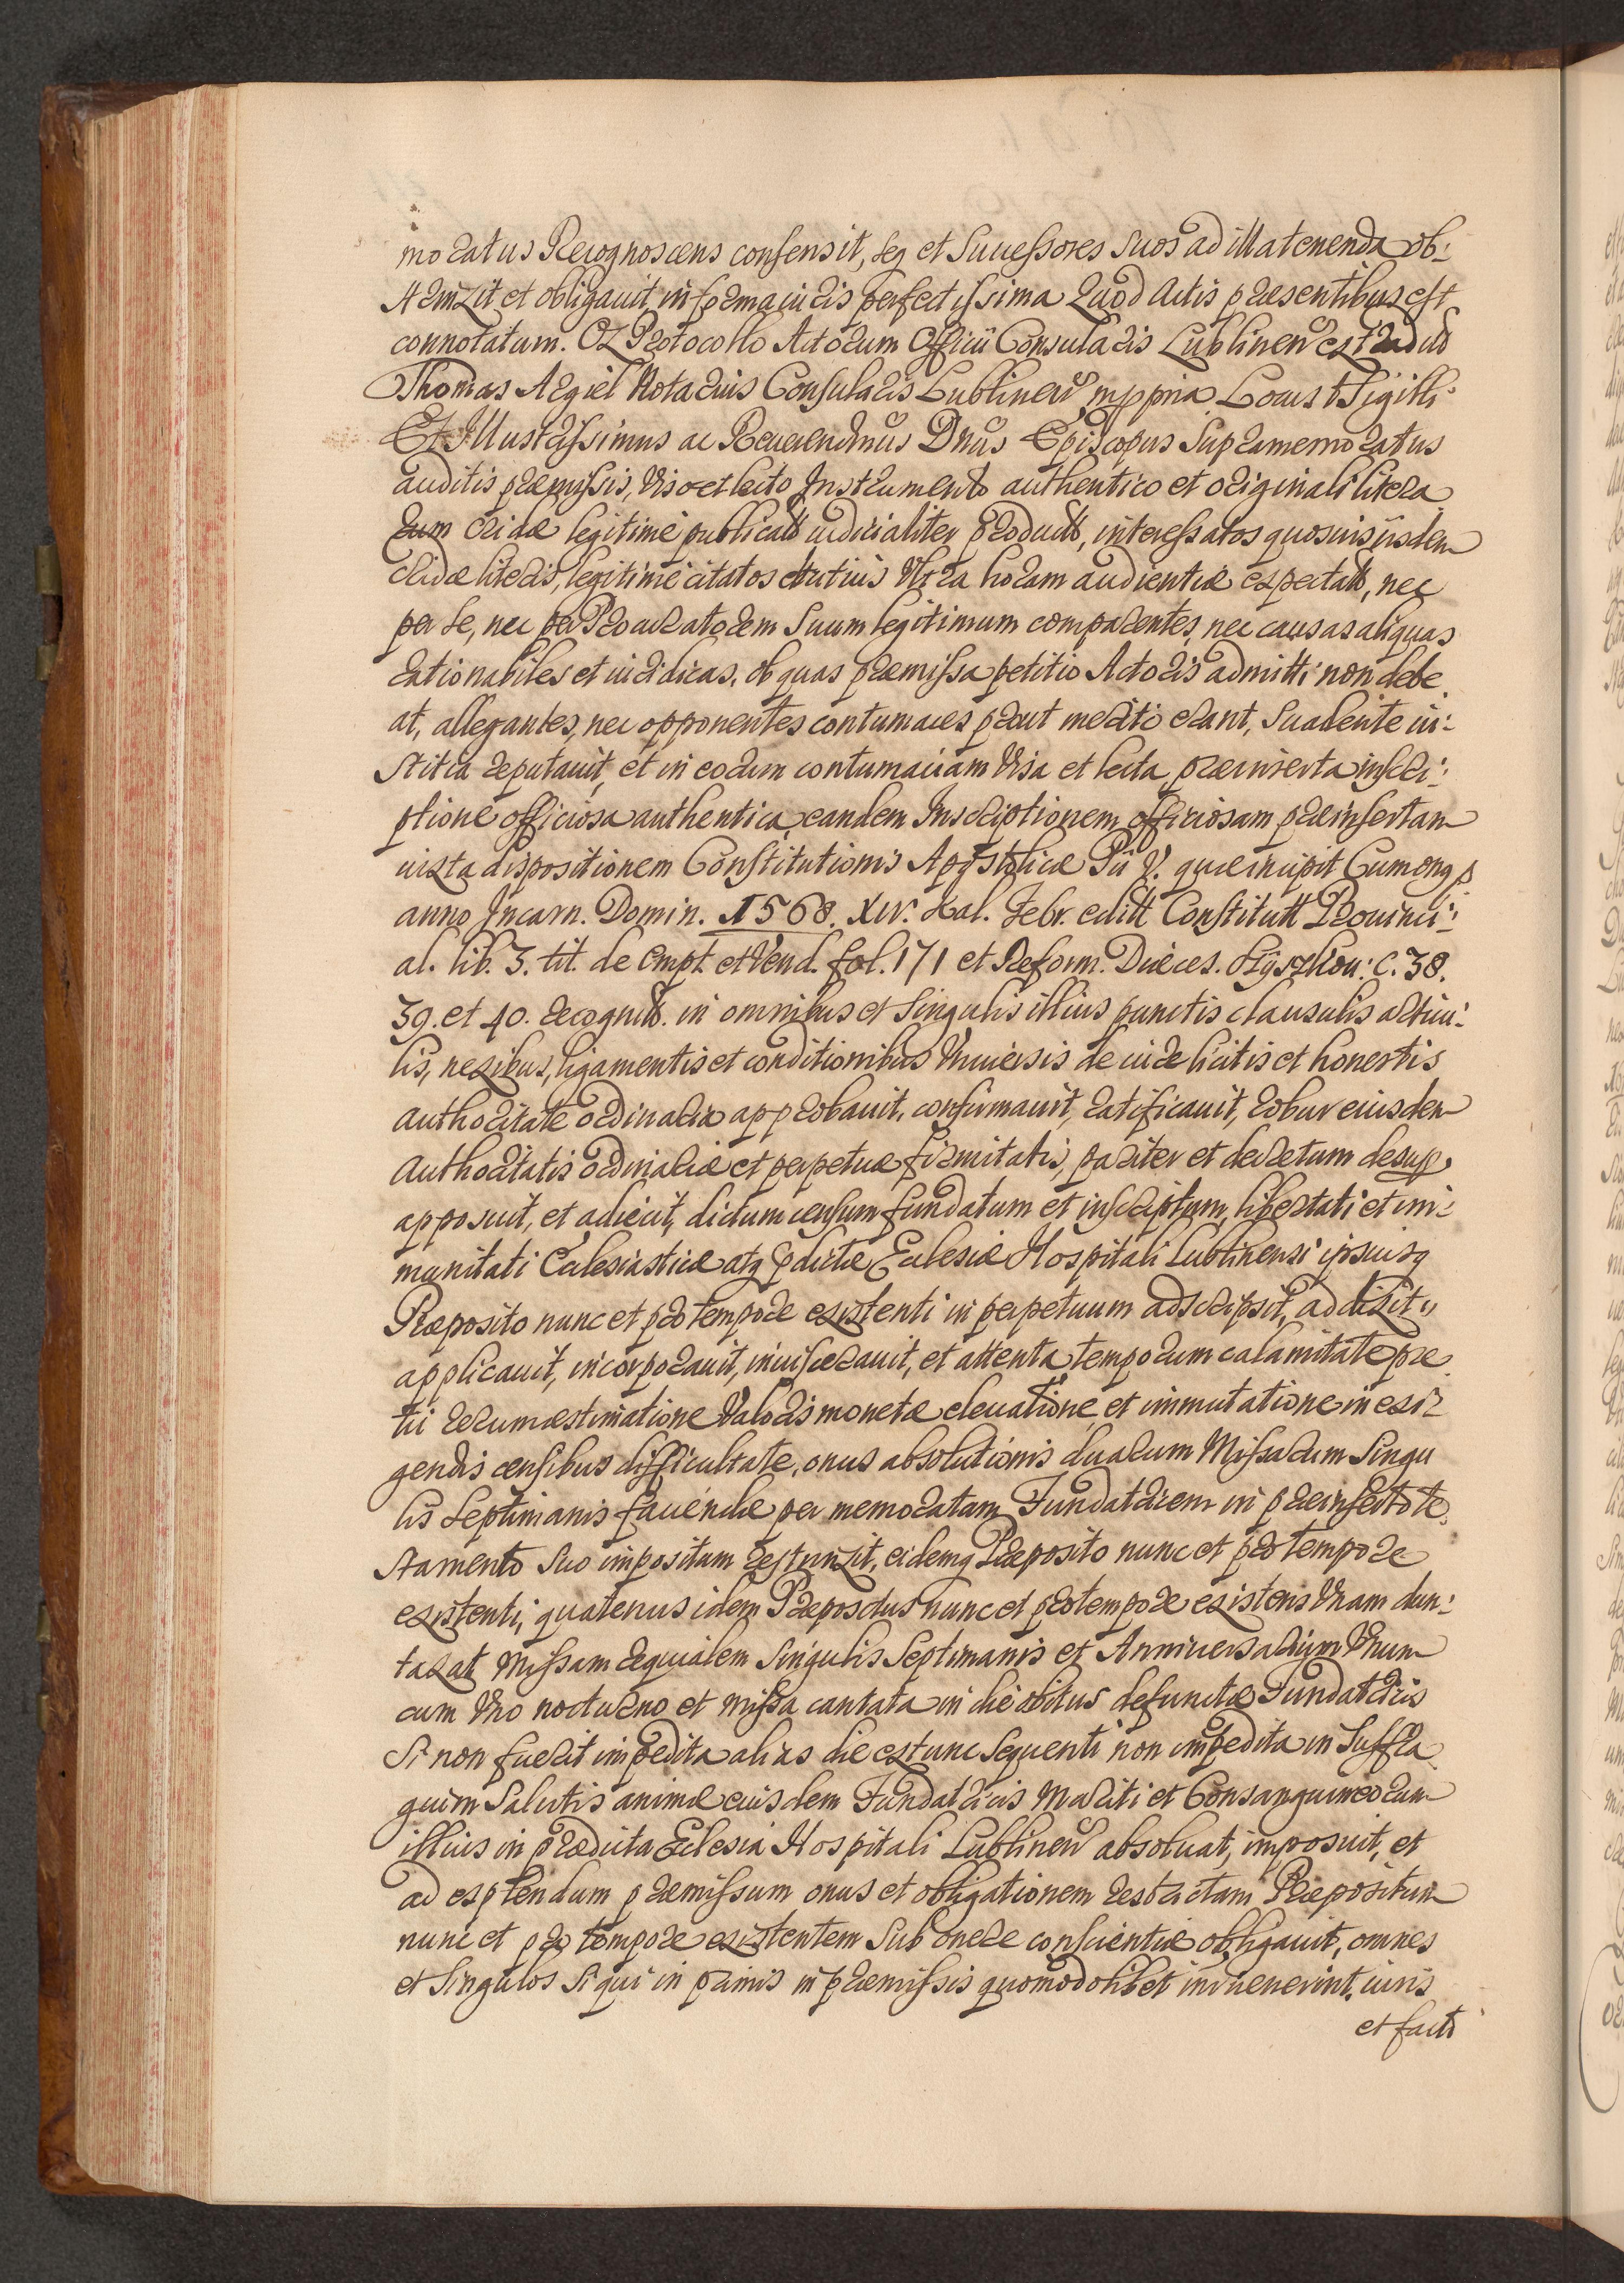 moratus Recognoscens consensit, seq et Successores suos ad illa tenenda ob:
strinxit et obligauit, in forma iuris perfectissima Quod Actis præsentibus est
connotatum. Ex Protocollo Actorum Officii Consularis Lublinen extradit
Thomas Argiel Notarius Consularis Lublinen mppria Locus Sigilli
Et Illustrissimus ac Reuerendmus Dnus Episcopus Supramemoratus
auditis præmissis, Viso et lecto Instrumento authentico et originali litera
rum cridæ legitime publicatt iudicialiter product, interessatos quosuis iisdem
cridæ literis, legitime citatos diutius Vltra horam audientiæ expectatt, nec
per se, nec per Procuratorem Suum legitimum comparentes, nec causas aliquas
rationabiles et iuridicas, ob quas præmissa petitio Actoris admitti non debe
at, allegantes, nec opponentes contumaces prout merito erant, Suadente iu:
stitia reputauit, et in eorum contumaciam Visa et lecta præinserta inscri:
ptione officiosa authentica, eandem Inscriptionem officiosam præinsertam
iuxta dispositionem Constitutionis Apostolicæ Pii V. quæ incipit Cum onus
anno Incarn. Domin. 1568. XIV. Kal. Febr. editt Constitutt Prouinci:
al. lib. 3. tit. de Empt. et Vend. fol. 171 et Reform. Diæces. Szyszkou: C. 38.
39. et 40. recognitt. in omnibus et singulis illius punctis clausulis articu:
lis, nexibus, ligamentis et conditionibus Vniuersis de iure licitis et honestis
authoritate ordinaria approbauit, confirmauit, ratificauit, robur eiusdem
Authoritatis ordinariæ et perpetuæ firmitatis, pariter et decretum desup.
apposuit, et adiecit, dictum censum fundatum et inscriptum, libertati et im:
munitati Ecclesiasticæ atq pdictæ Ecclesiæ Hospitali Lublinensi ipsiusq
Præposito nunc et pro tempore existenti in perpetuum adscripsit, addixit,
applicauit, incorporauit, inuiscerauit, et attenta temporum calamitate pre
tii rerum æstimatione Valoris monetæ eleuatione, et immutatione in exi:
gendis censibus difficultate, onus absolutionis duarum Missarum Singu
lis Septimanis faciendæ per memoratam Fundatricem in præinserto te
stamento suo impositum restrinxit, eidemq Præposito nunc et pro tempore
existenti, quatenus idem Præpositus nunc et pro tempore existens Vnam dun:
taxat Missam requialem Singulis Septimanis et Anniuersarium Vnum
cum Vno nocturno et Missa cantata in die obitus defunctæ Fundatricis
Si non fuerit impedita alias die extunc sequenti non impedita in Suffra
gium Salutis animæ eiusdem Fundatricis Mariti et Consanguineorum
illius in prædicta Ecclesia Hospitali Lublinen absoluat, imposuit, et
ad explendum præmissum onus et obligationem restrictam Præpositum
nunc et pro tempore existentem Sub onere conscientiæ obligauit, omnes
et Singulos Si qui in primis in præmissis quomodolibet inuenerint, iuris
et facti